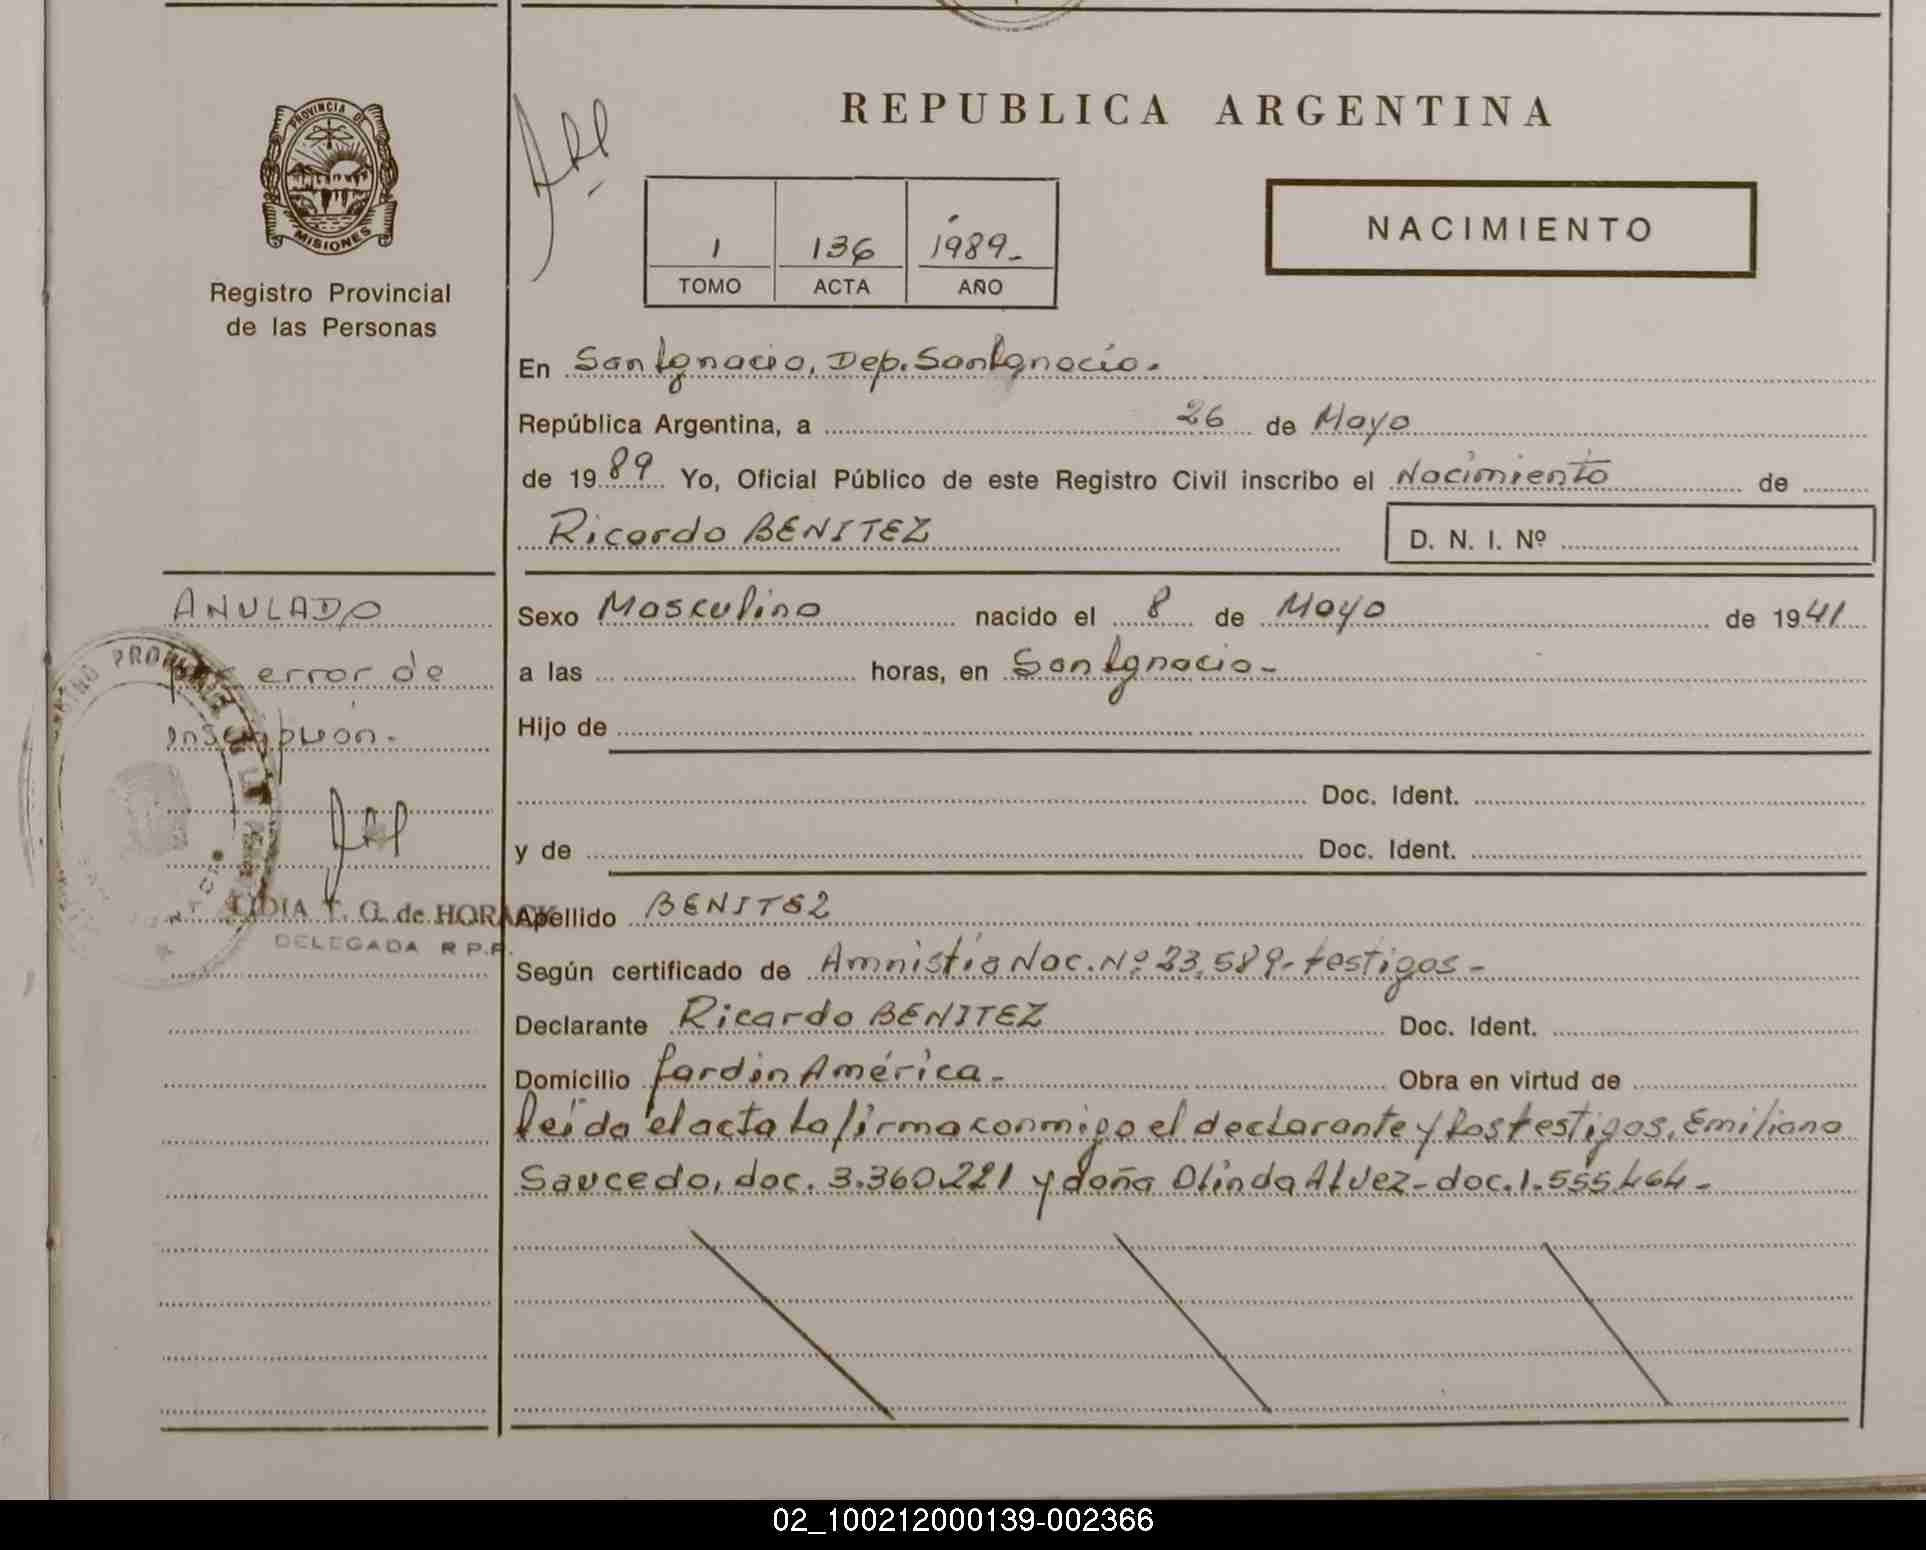 REPUBLICA ARGENTINA
PROVINCIA DE
MISIONES
Registro Provincial
de las Personas
1 136 1989.-
TOMO ACTA AÑO
NACIMIENTO
En San Ignacio, Dep. San Ignacio.
República Argentina, a 26 de Mayo
de 1989 Yo, Oficial Público de este Registro Civil inscribo el Nacimiento de
Ricardo BENITEZ
D. N. I. Nº
ANULADO
por error de
inscripción.-
LIDIA T. G. de HORACK
DELEGADA R.P.P.
Sexo Masculino nacido el 8 de Mayo de 1941
a las horas, en San Ignacio-
Hijo de
Doc. Ident.
y de Doc. Ident.
Apellido BENITEZ
Según certificado de Amnistía Nac. Nº 23.589- testigos-
Declarante Ricardo BENITEZ Doc. Ident.
Domicilio Jardin América- Obra en virtud de
leída el acta la firma conmigo el declarante y los testigos, Emiliano
Saucedo, doc. 3.360.221 y doña Olinda Alvez- doc. 1.555.464-
02_100212000139-002366